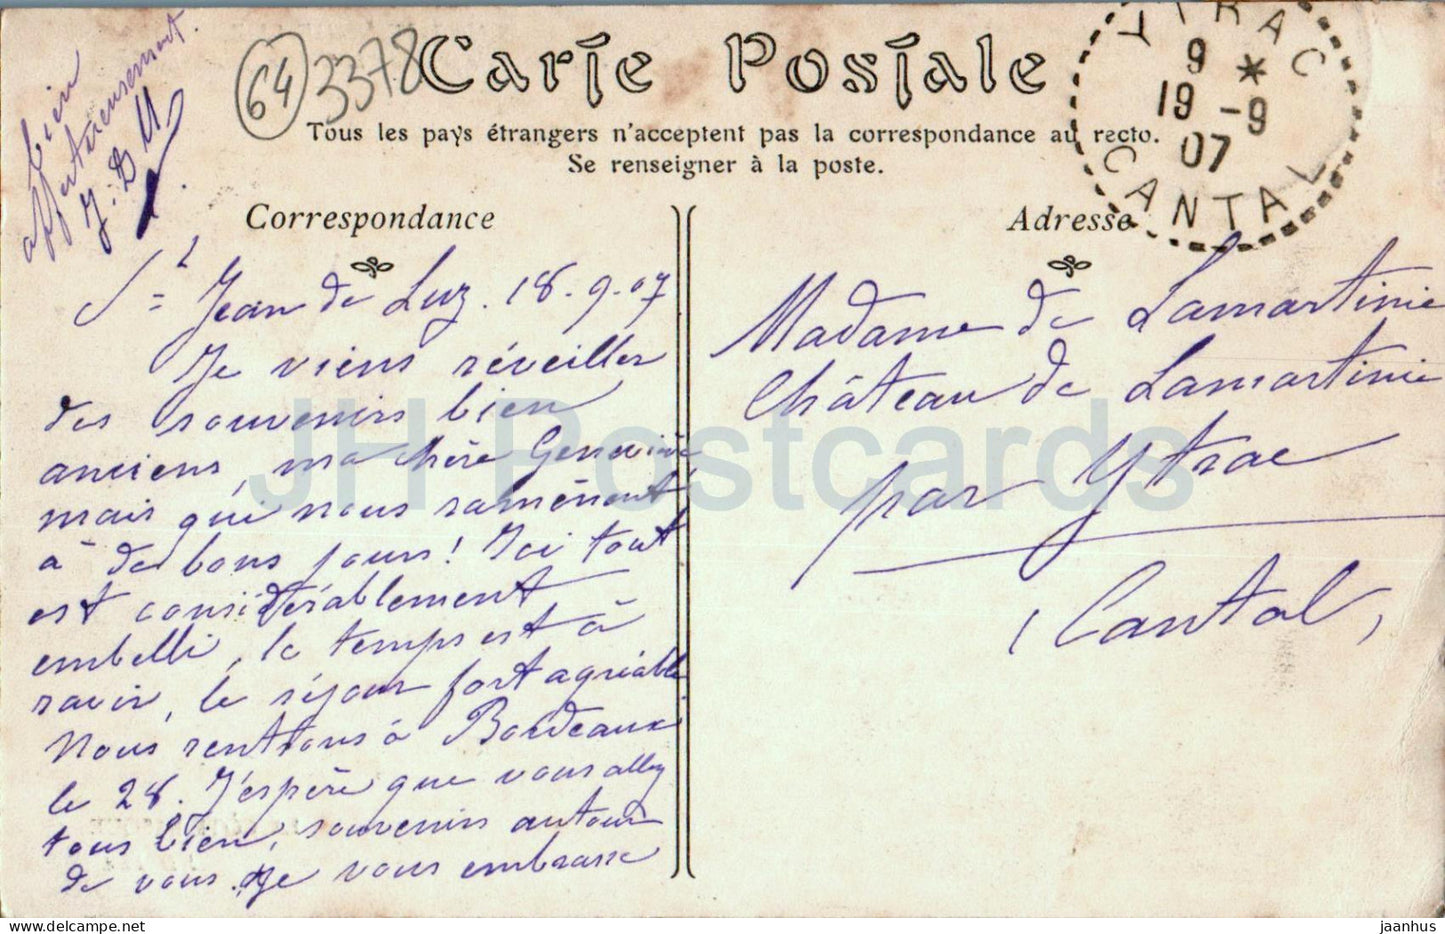 Carte Postale
Tous les pays étrangers n'acceptent pas la correspondance au recto.
Se renseigner à la poste.
64 3378
YTRAC
9 *
19 -9
07
CANTAL
Correspondance
Adresse
St Jean de Luz. 18.9.07
Je viens réveiller
des souvenirs bien
anciens, ma chère Geneviève
mais qui nous ramènent
à de bons jours! Ici tout
est considérablement
embelli, le temps est à
ravir, le séjour fort agréable.
Nous rentrons à Bordeaux
le 28. J'espère que vous allez
tous bien, souvenirs autour
de vous. Je vous embrasse
bien
affectueusement.
J. D M
Madame de Lamartinie
Château de Lamartinie
par Ytrac
(Cantal)
JH Postcards
delcampe.net
jaanhus